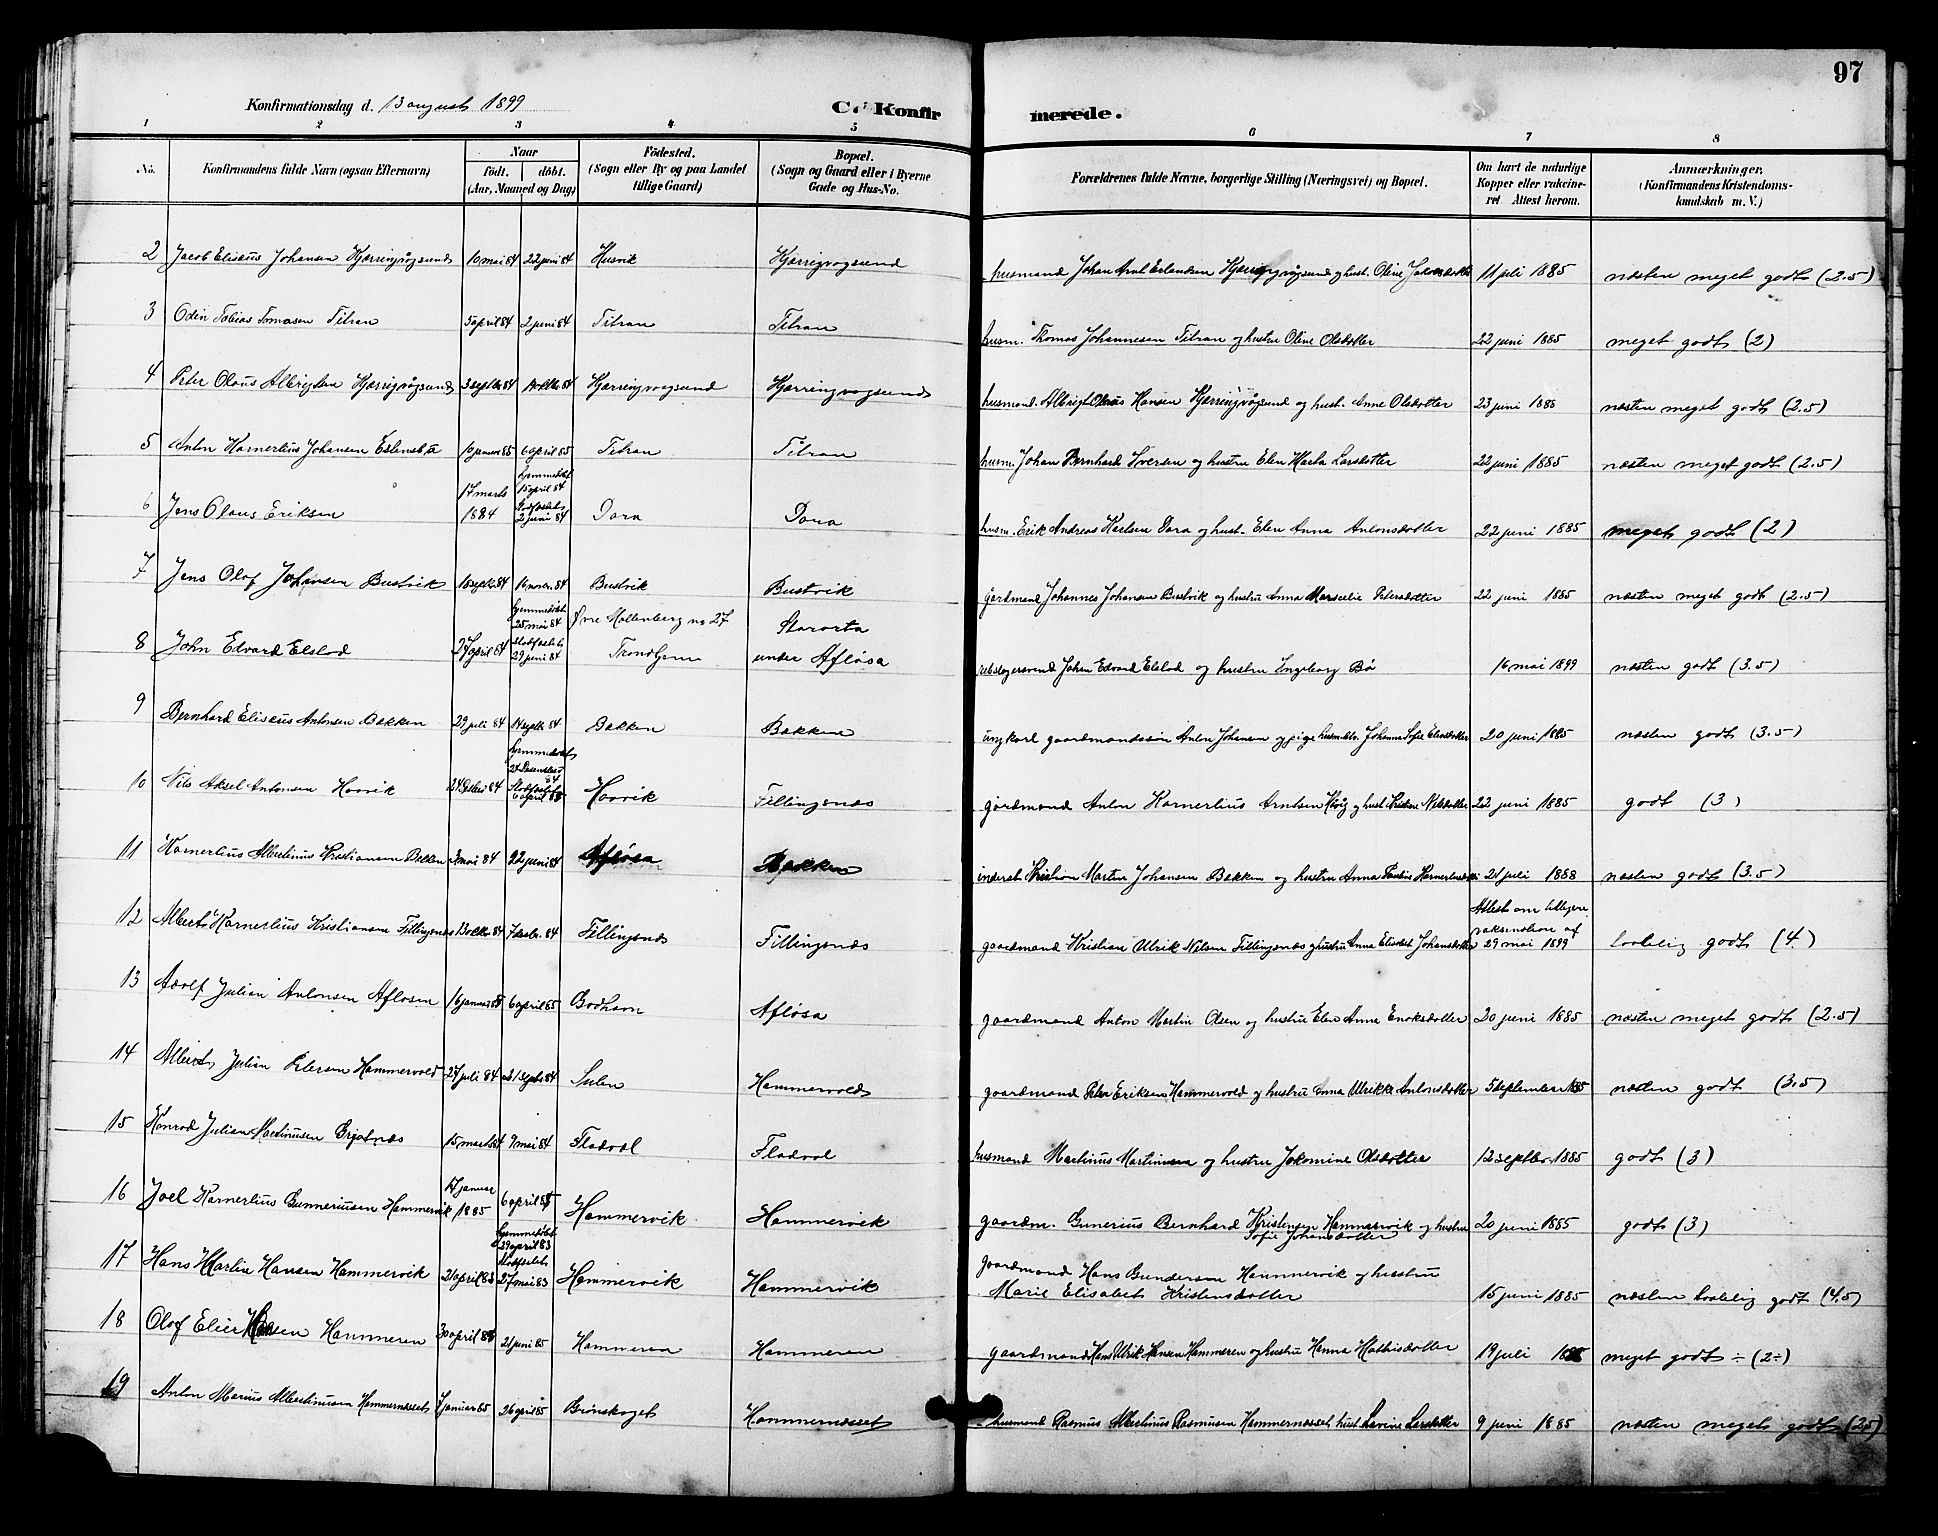 97
Konfirmationsdag d. 13 august 1899
Konfirmerede.
1 2 3 4 5 6 7 8
No. Konfirmandens fulde Navn (ogsaa Efternavn) Naar födt. döbt. (Aar, Maaned og Dag) Födested. (Sogn eller By og paa Landet tillige Gaard) Bopæl. (Sogn og Gaard eller i Byerne Gade og Hus-No. Forældrenes fulde Navne, borgerlige Stilling (Næringsvei) og Bopæl. Om havt de naturlige Kopper eller vakcineret Attest herom. Anmærkninger. (Konfirmandens Kristendomskundskab m. V.)
2 Jacob Elisæus Johansen Kjærringvågsund 10 mai 84 22 juni 84 Husvik Kjærrigvogsund husmand Johan Arnt Erlandsen Kjærrigvågsund og hust. Oline Jakobsdotter 11 juli 1885 næsten meget godt (2.5)
3 Odin Tobias Tomasen Titran 5 april 84 2 juni 84 Titran Titran husm. Thomas Johannesen Titran og hustru Oline Olsdotter 22 juni 1885 meget godt (2)
4 Peter Olaus Albrigtsen Kjærrigvågsund 3 septbr 84 Kjærringvogsund Kjærringvogsund husmand. Albrigt Olaus Hansen Kjærringvågsund og hust. Anne Olsdotter 23 juni 1885 næsten meget godt (2.5)
5 Anton Kornerlius Johansen 10 januar 85 6 april 85 Titran Titran husm. Johan Bernhard Iversen og hustru Elen Marta Larsdotter 22 juni 1885 næsten meget godt (2.5)
6 Jens Olaus Eriksen 17 marts 1884 hjemmedøbt 15 april 84 Stadfæstet 2 juni 84 Dora Dora husm. Erik Andreas Karlsen Dora og hust. Elen Anna Antonsdotter 22 juni 1885 meget godt (2)
7 Jens Olaf Johansen Bustvik 16 novbr. 84 Bustvik Bustvik gardmand Johannes Johansen Bustvik og hustru Anna Marselie Petersdotter 22 juni 1885 næsten meget godt (2.5)
8 John Edvard Elslad 27 april 84 hjemmedøbt 25 mai 84 Stadfæstet 29 juni 84 Øvre Mollenberg no 27 Trondhjem Storvrta under Afløsa Johan Edvard Elslad og hustru Ingeborg Bø 16 mai 1899 næsten godt (3.5)
9 Bernhard Elisæus Antonsen Bakken 29 juli 84 14 septbr 84 Bakken Bakken ungkarl gaardmandssøn Anton Johansen og pige Johanna Sofie 20 juni 1885 næsten godt (3.5)
10 Nils Aksel Antonsen Hovvik 24 84 hjemmedøbt 84 Stadfæstet 6 april 85 Hovvik Fillingsnæs gårdmand Anton Kornerlius Arntsen og hust. Nilsdotter 22 juni 1885 godt (3)
11 Kornerlius Albertinus Kristiansen Bakken 3 mai 84 22 juni 84 Afløsa Bakken inderst Kristian Martin Johansen Bakken og hustru Anna Pauline 21 juli 1888 næsten godt (3.5)
12 Albert Kornerlius Kristiansen Fillingsnæs 84 7 84 Fillingsnæs Fillingsnæs gaardmand Kristian Ulrik Nilsen Fillingsnæs og hustru Anna Elisabet Johansdotter Attest om tidligere vaksination af 29 mai 1899 taalelig godt (4)
13 Adolf Julian Antonsen Afløsen 16 januar 85 6 april 85 Afløsa gaardmand Anton Martin Olsen og hustru Elen Anna Enoksdotter 20 juni 1885 næsten meget godt (2.5)
14 Albert Julian Petersen Hammervold 27 juli 84 21 septbr 84 Sulen Hammervold gaardmand Peter Eriksen Hammervold og hustru Anna Ulrikke Antonsdotter 5 september 1885 næsten godt (3.5)
15 Konrad Julian Martinusen Grjotnæs 15 marts 84 9 mai 84 Fladval Fladval husmand Martinus Martinusen og hustru Jakomine Olsdotter 12 septbr. 1885 godt (3)
16 Joel Kornerlius Gunneriusen Hammervik 17 januar 1885 6 april 85 Hammervik Hammervik gaardm. Gunerius Bernhard Kristensen Hammervik og hustru Sofie Johansdotter 20 juni 1885 godt (3)
17 Hans Martin Hansen Hammervik 21 april 83 hjemmedøbt 29 april 83 Stadfæstet 27 mai 83 Hammervik Hammervik gaardmand Hans Gundersen Hammervik og hustru Marie Elisabet Kristensdotter 15 juni 1885 næsten taalelig godt (4.5)
18 Olaf Elier Hansen Hammeren 30 april 85 21 juni 85 Hammeren Hammeren gaardmand Hans Ulrik Hansen Hammeren og hustru Hanna Mathisdotter 19 juli meget godt ÷ (2÷)
19 Anton Marius Albertinusen Hammernæsset 7 januar 85 26 april 85 Brønskaget Hammernæsset husmand Rasmus Albertinus Rasmusen Hammernæsset hust Lovine Larsdotter 9 juni 1885 næsten meget godt (2.5)